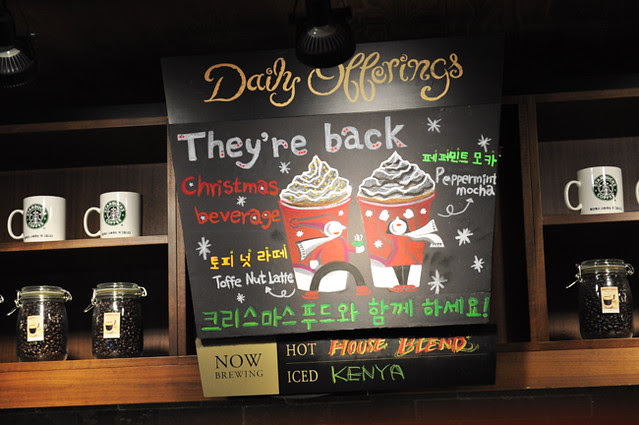 Daily Offerings
They're back
Christmas
beverage
페퍼민트 모카
Peppermint
mocha
토피 넛 라떼
Toffe Nut Latte
크리스마스 푸드와 함께 하세요!
NOW
BREWING
HOT HOUSE BLEND
ICED KENYA